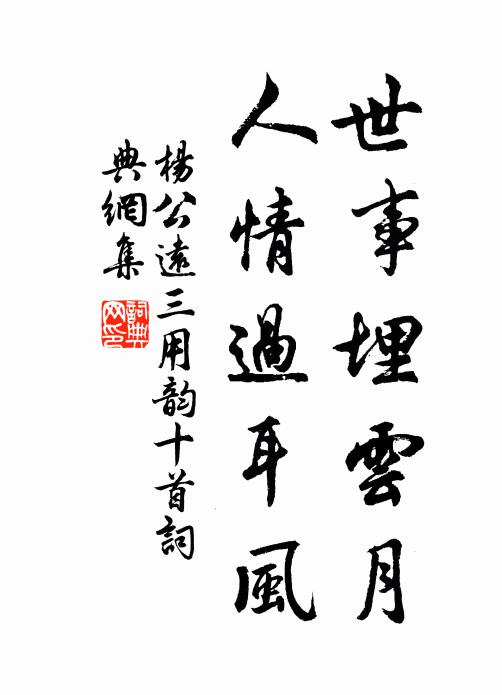 世事埋雲月
人情過耳風
楊公遠三用韵十首詞
典網集
詞典
网印